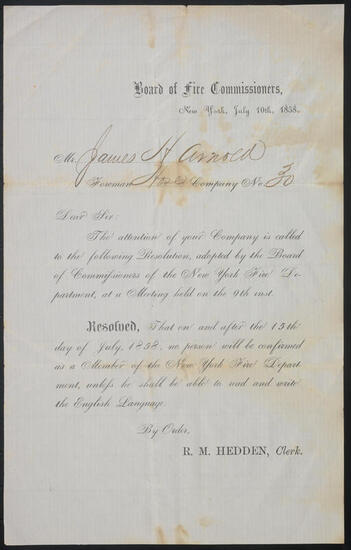 Board of Fire Commissioners,
New York, July 10th, 1858.
Mr. James H Arnold
Foreman Hose Company No. 30
Dear Sir:
The attention of your Company is called
to the following Resolution, adopted by the Board
of Commissioners of the New York Fire De-
partment, at a Meeting held on the 9th inst.
Resolved, That on and after the 15th
day of July, 1858, no person will be confirmed
as a Member of the New York Fire Depart-
ment, unless he shall be able to read and write
the English Language.
By Order,
R. M. HEDDEN, Clerk.